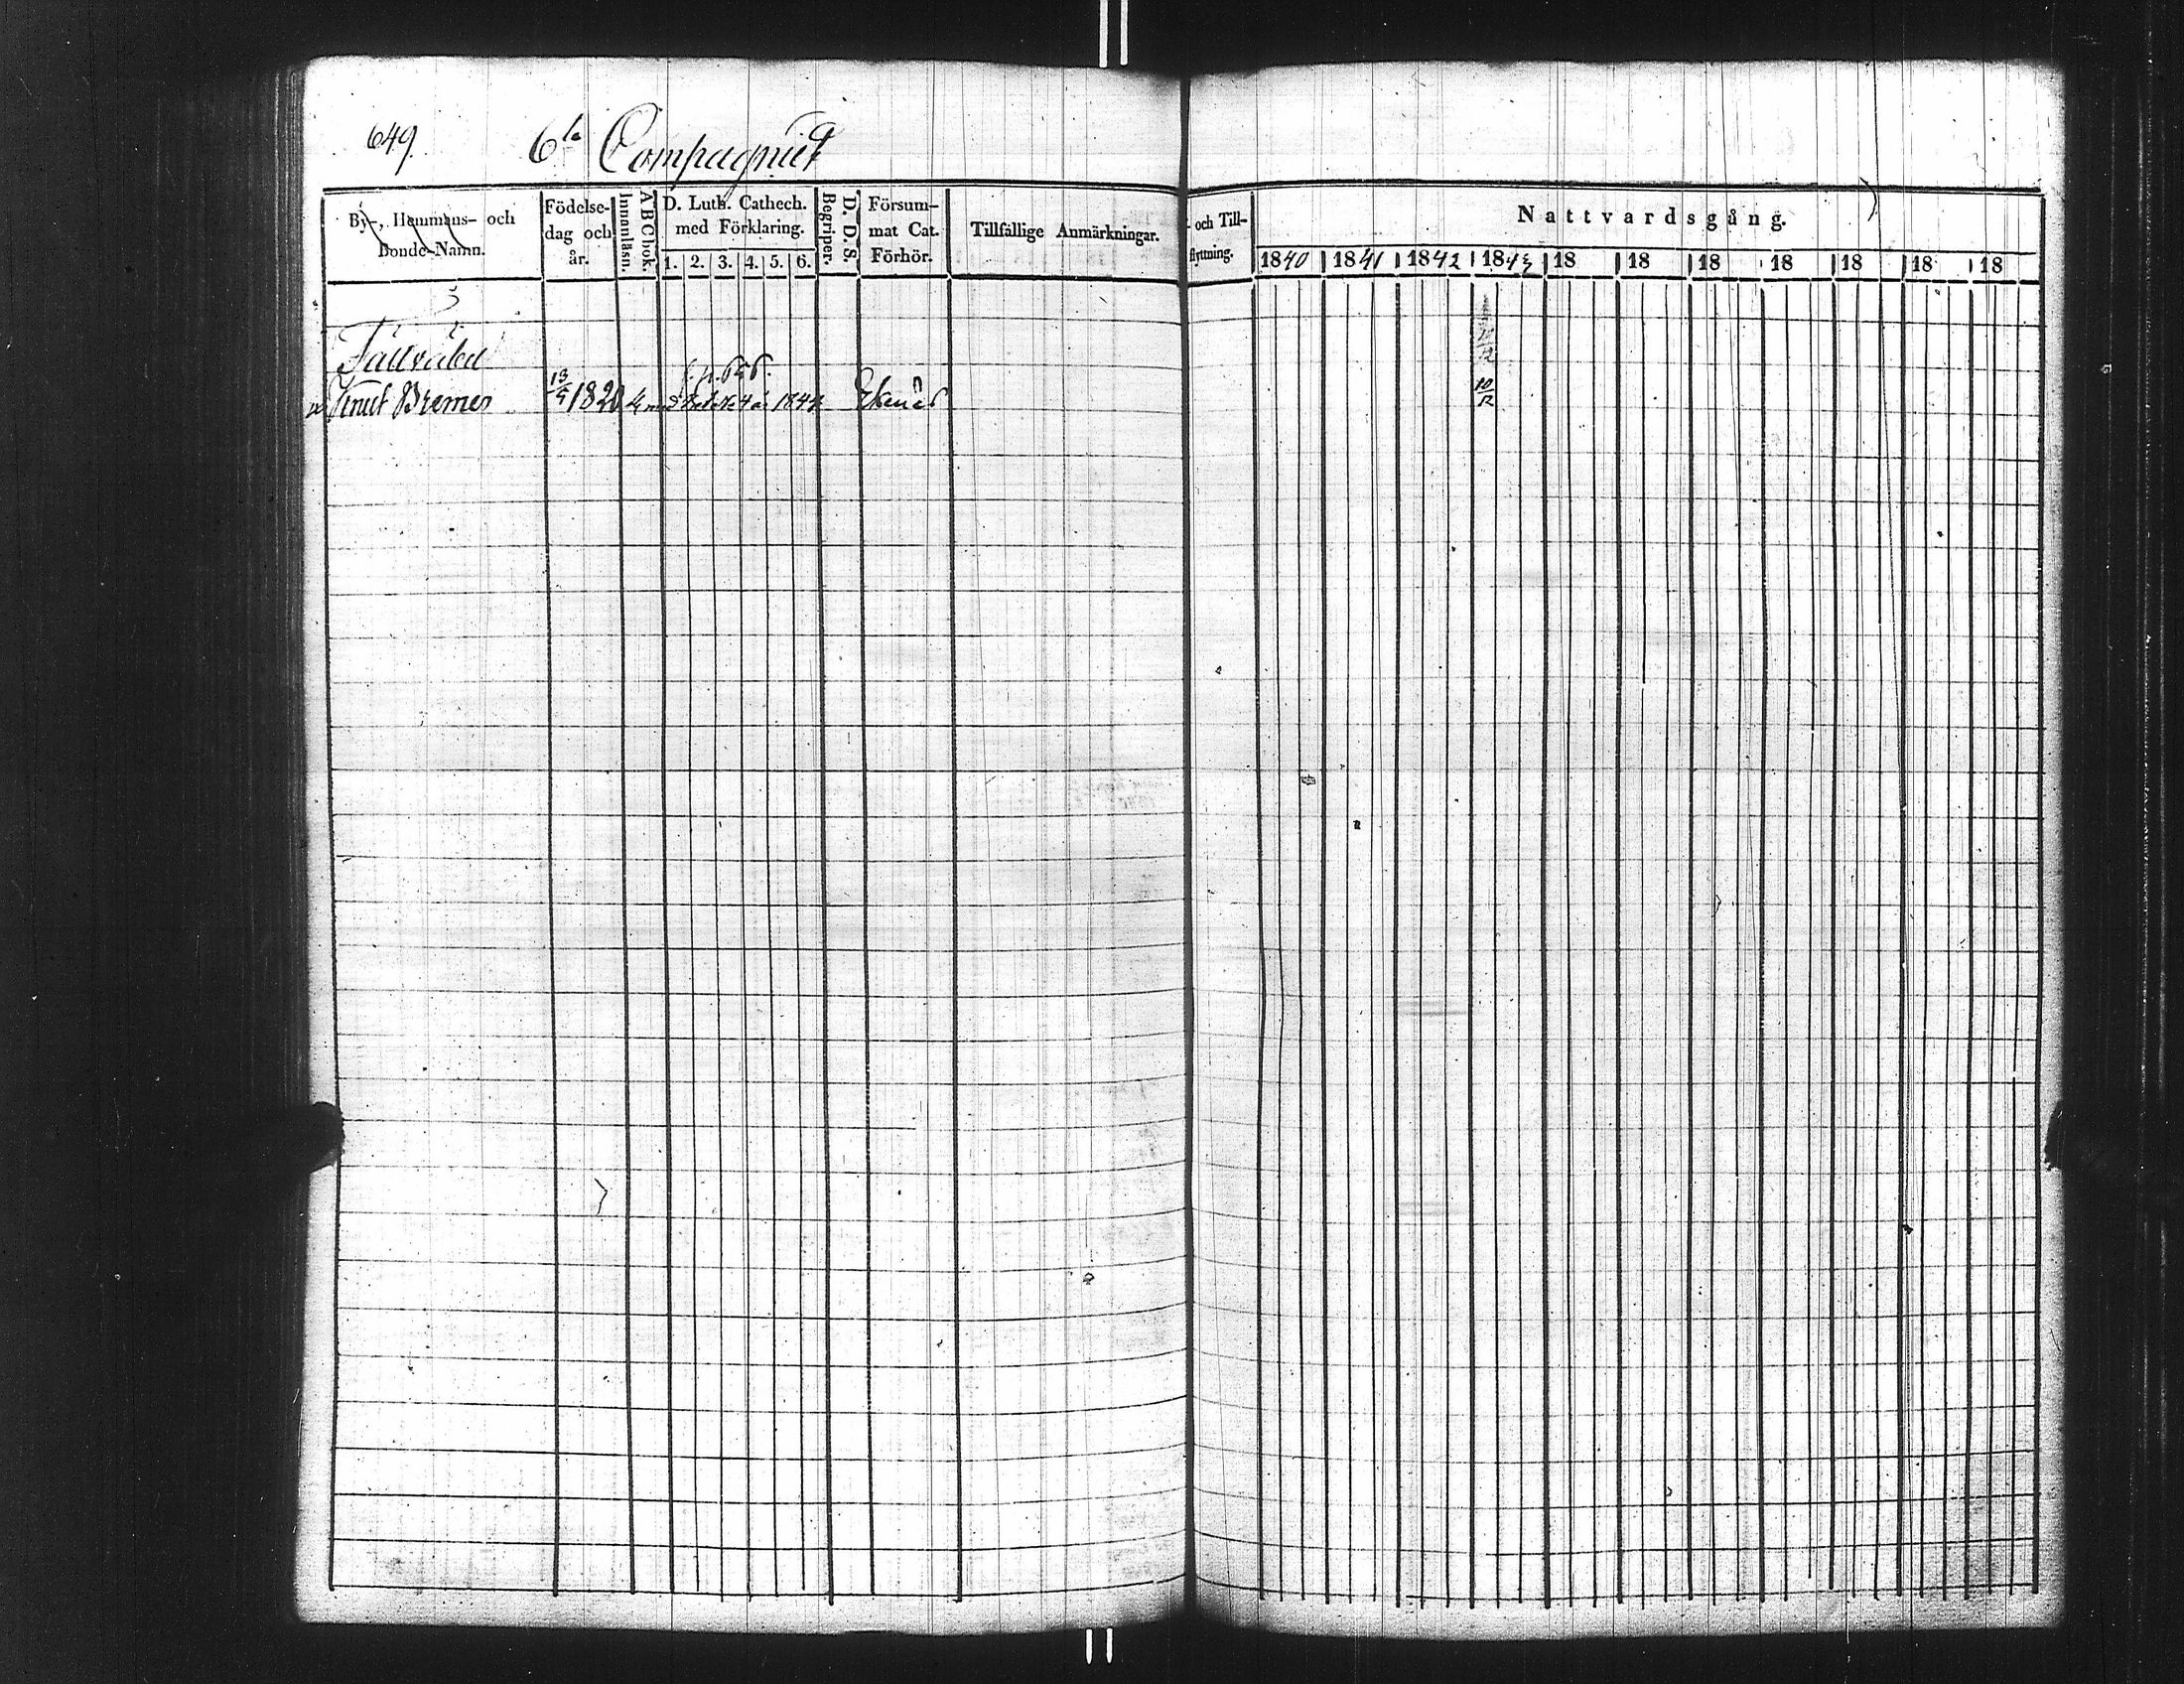 649.
6te Compagniet
By-, Hemmans- och Bonde-Namn.
Födelse-dag och år.
Innanläsn.
A B C bok.
D. Luth. Cathech. med Förklaring.
1. 2. 3. 4. 5. 6.
Begriper.
D. D. S.
Försum-mat Cat. Förhör.
Tillfällige Anmärkningar.
och Till-flyttning.
Nattvardsgång.
1840 1841 1842 1843 18 18 18 18 18 18 18
10/12
p. 656.
Knut Bremer 13/9 1820 1844 Ekenäs 10/12